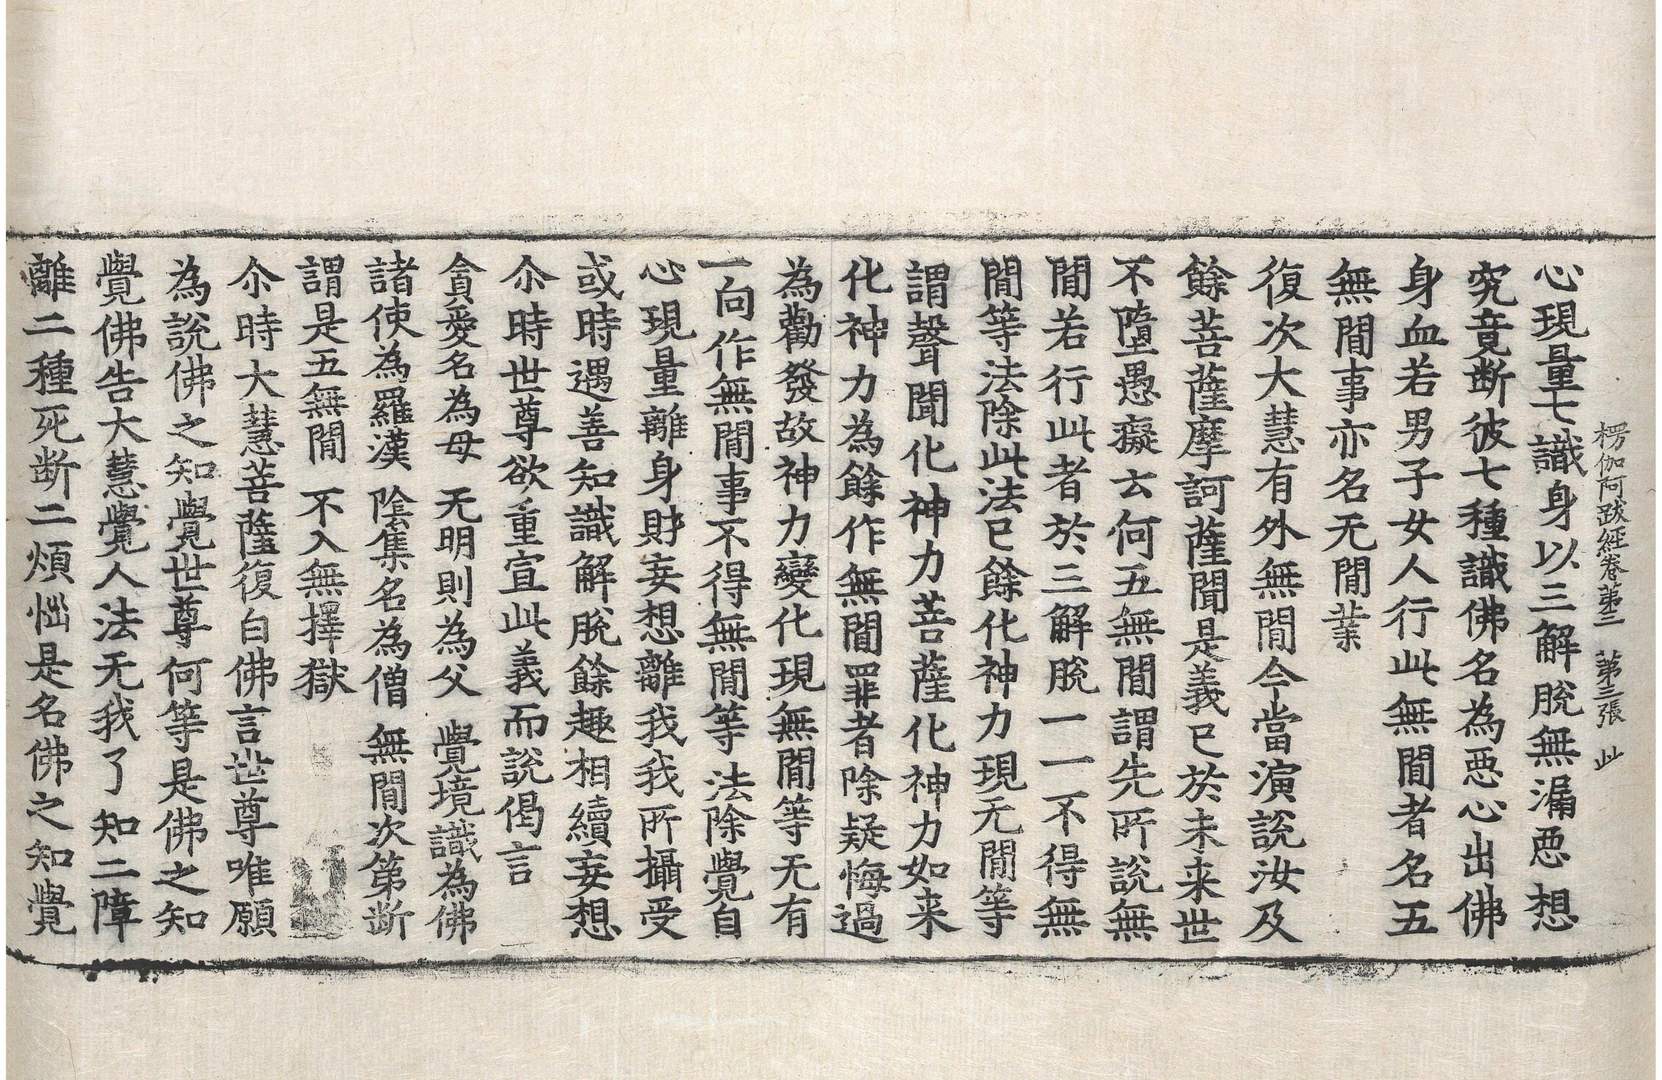 楞伽阿跋經卷第三　第三張　此
心現量七識身以三解脫無漏惡想
究竟断彼七種識佛名為惡心出佛
身血若男子女人行此無間者名五
無間事亦名无間業
復次大慧有外無間今當演說汝及
餘菩薩摩訶薩聞是義已於未来世
不墮愚癡云何五無間謂先所說無
間若行此者於三解脫一一不得無
間等法除此法已餘化神力現无間等
謂聲聞化神力菩薩化神力如来
化神力為餘作無間罪者除疑悔過
為勸發故神力變化現無間等无有
一向作無間事不得無間等法除覺自
心現量離身財妄想離我我所攝受
或時遇善知識解脫餘趣相續妄想
尒時世尊欲重宣此義而說偈言
貪愛名為母　无明則為父　覺境識為佛
諸使為羅漢　陰集名為僧　無間次第断
謂是五無間　不入無擇獄
尒時大慧菩薩復白佛言世尊唯願
為說佛之知覺世尊何等是佛之知
覺佛告大慧覺人法无我了知二障
離二種死断二煩惱是名佛之知覺